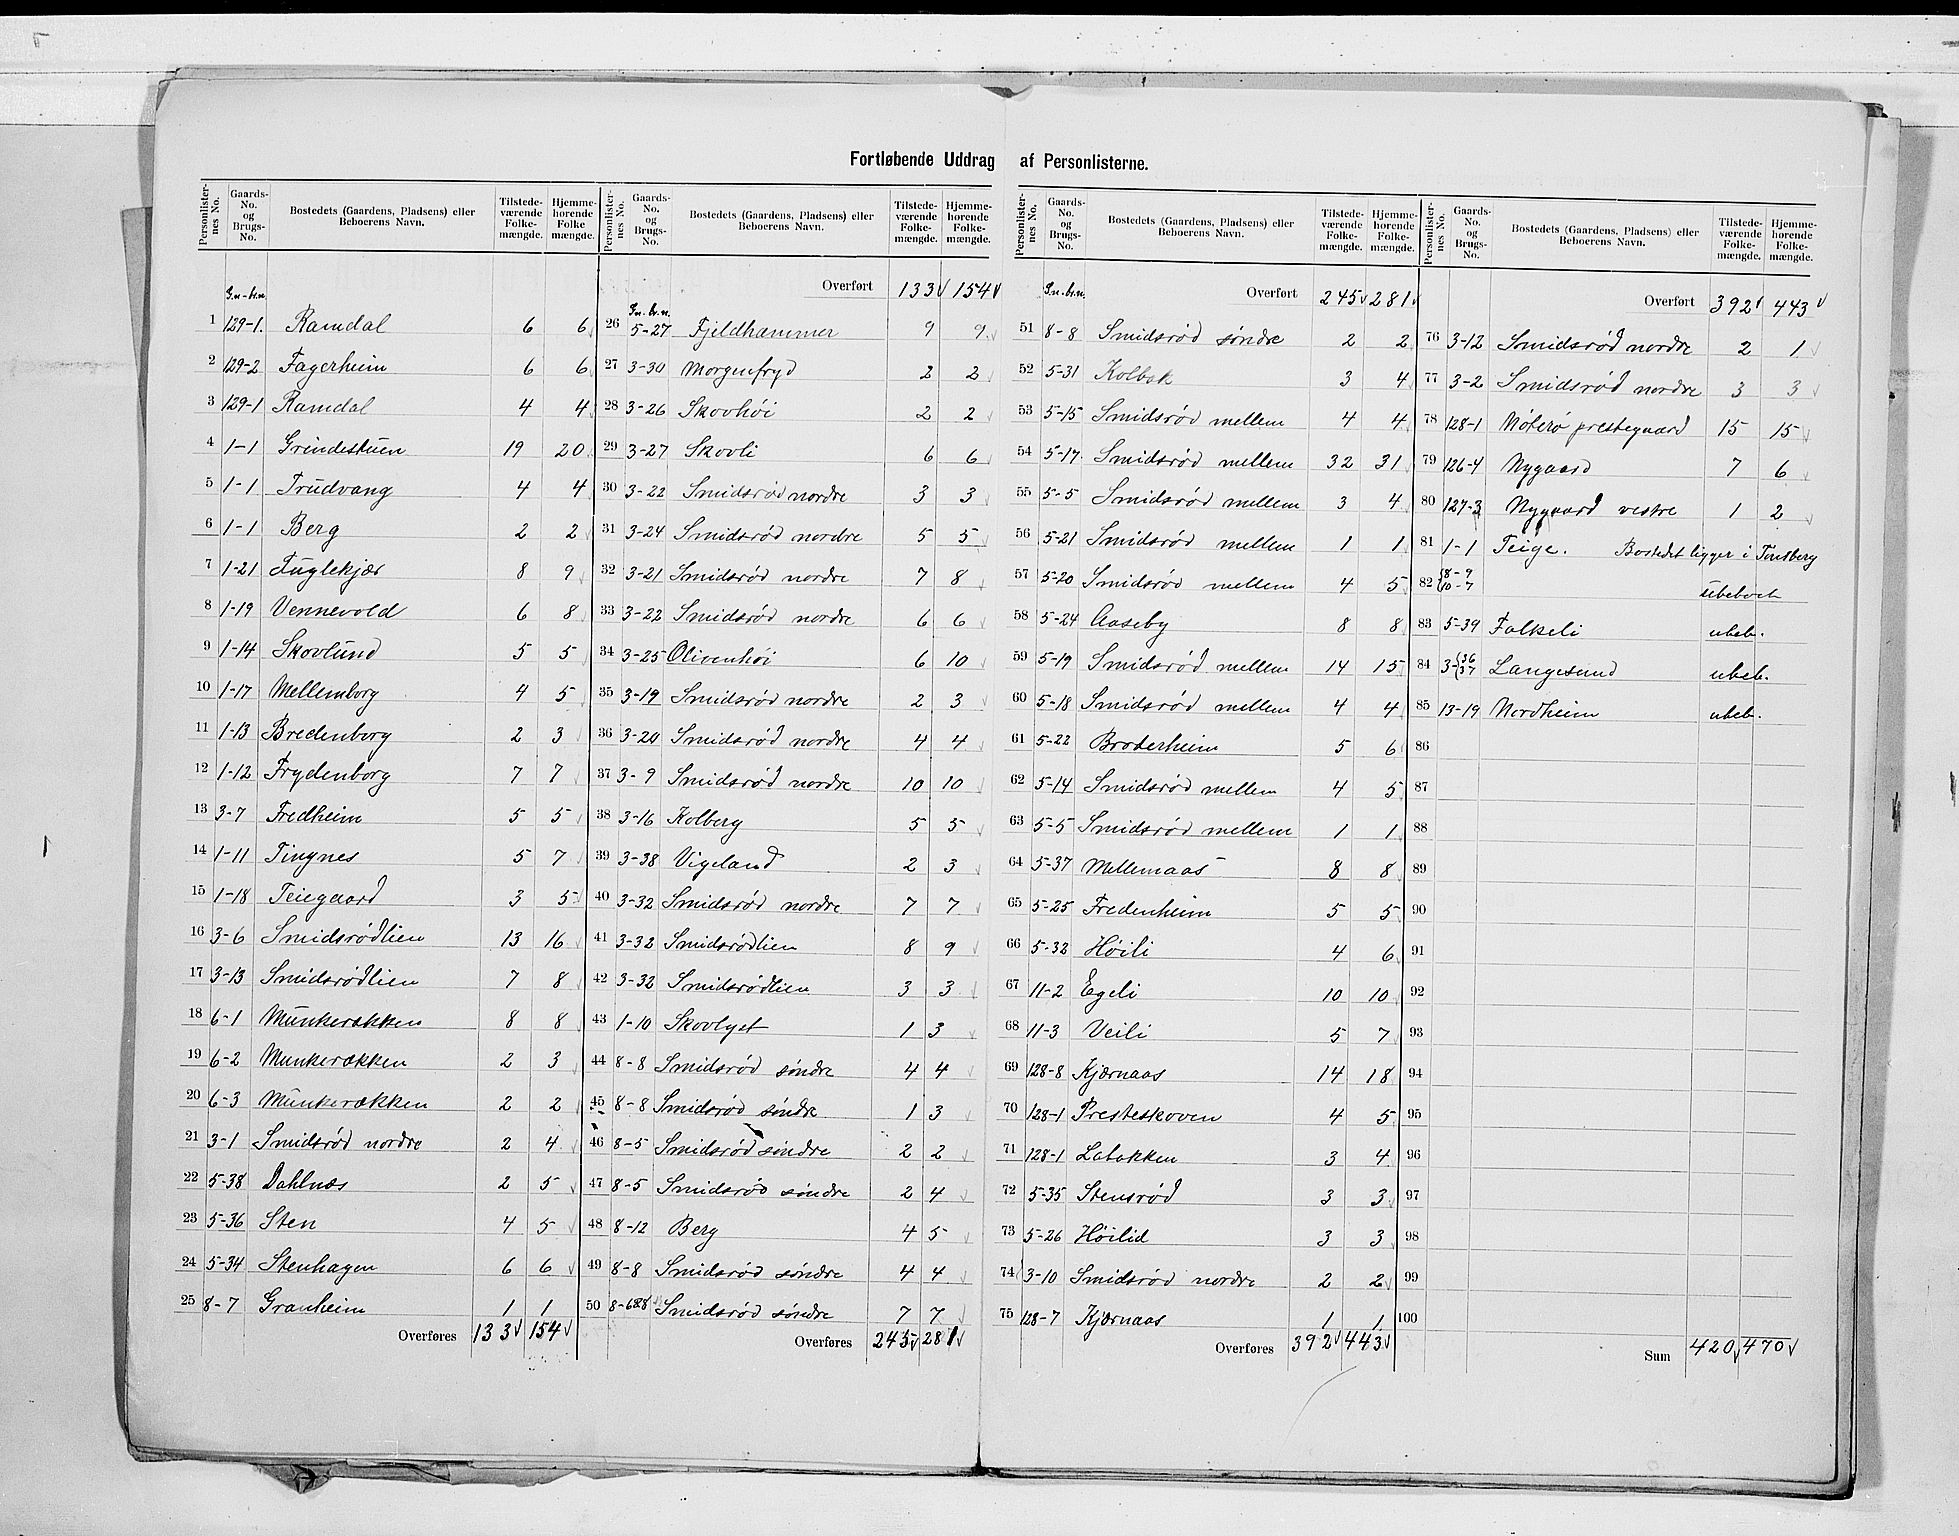 Fortløbende Uddrag af Personlisterne.
Personlisternes No. Gaards-No. og Brugs-No. Bostedets (Gaardens, Pladsens) eller Beboerens Navn. Tilstedeværende Folkemængde. Hjemmehørende Folkemængde.
G.n.-br.n.
1 129-1. Ramdal 6 6
2 129-2 Fagerheim 6 6
3 129-1 Ramdal 4 4
4 1-1 Grindestuen 19 20
5 1-1 Trudvang 4 4
6 1-1 Berg 2 2
7 1-21 Fuglekjær 8 9
8 1-19 Vennevold 6 8
9 1-14 Skovlund 5 5
10 1-17 Mellemborg 4 5
11 1-13 Bredenborg 2 3
12 1-12 Frydenborg 7 7
13 3-7 Fredheim 5 5
14 1-11 Tingnes 5 7
15 1-18 Teiegaard 3 5
16 3-6 Smidsrødlien 13 16
17 3-13 Smidsrødlien 7 8
18 6-1 Munkerækken 8 8
19 6-2 Munkerækken 2 3
20 6-3 Munkerækken 2 2
21 3-1 Smidsrød nordre 2 4
22 5-38 Dahlnæs 2 5
23 5-36 Sten 4 5
24 5-34 Stenhagen 6 6
25 8-7 Granheim 1 1
Overføres 133 154
Personlisternes No. Gaards-No. og Brugs-No. Bostedets (Gaardens, Pladsens) eller Beboerens Navn. Tilstedeværende Folkemængde. Hjemmehørende Folkemængde.
Overført 133 154
G.n.-br.n.
26 5-27 Fjeldhammer 9 9
27 3-30 Morgenfryd 2 2
28 3-26 Skovhøi 2 2
29 3-27 Skovli 6 6
30 3-22 Smidsrød nordre 3 3
31 3-24 Smidsrød nordre 5 5
32 3-21 Smidsrød nordre 7 8
33 3-22 Smidsrød nordre 6 6
34 3-25 Olivenhøi 6 10
35 3-19 Smidsrød nordre 2 3
36 3-20 Smidsrød nordre 4 4
37 3-9 Smidsrød nordre 10 10
38 3-16 Kolberg 5 5
39 3-38 Vigeland 2 3
40 3-32 Smidsrød nordre 7 7
41 3-32 Smidsrødlien 8 9
42 3-32 Smidsrødlien 3 3
43 1-10 Skovlyst 1 3
44 8-8 Smidsrød søndre 4 4
45 8-8 Smidsrød søndre 1 3
46 8-5 Smidsrød søndre 2 2
47 8-5 Smidsrød søndre 2 4
48 8-12 Berg 4 5
49 8-8 Smidsrød søndre 4 4
50 8-6&8 Smidsrød søndre 7 7
Overføres 245 281
Personlisternes No. Gaards-No. og Brugs-No. Bostedets (Gaardens, Pladsens) eller Beboerens Navn. Tilstedeværende Folkemængde. Hjemmehørende Folkemængde.
G.n.-br.n. Overført 245 281
51 8-8 Smidsrød søndre 2 2
52 5-31 Kolbæk 3 4
53 5-15 Smidsrød mellem 4 4
54 5-17 Smidsrød mellem 32 31
55 5-5 Smidsrød mellem 3 4
56 5-21 Smidsrød mellem 1 1
57 5-20 Smidsrød mellem 4 5
58 5-24 Aaseby 8 8
59 5-19 Smidsrød mellem 14 15
60 5-18 Smidsrød mellem 4 4
61 5-22 Broderheim 5 6
62 5-14 Smidsrød mellem 4 5
63 5-5 Smidsrød mellem 1 1
64 5-37 Mellemaas 8 8
65 5-25 Fredenheim 5 5
66 5-32 Høili 4 6
67 11-2 Egeli 10 10
68 11-3 Veili 5 7
69 128-8 Kjærnaas 14 18
70 128-1 Presteskoven 4 5
71 128-1 Labakken 3 4
72 5-35 Stensrød 3 3
73 5-26 Høilid 3 3
74 3-10 Smidsrød nordre 2 2
75 128-7 Kjærnaas 1 1
Overføres 392 443
Personlisternes No. Gaards-No. og Brugs-No. Bostedets (Gaardens, Pladsens) eller Beboerens Navn. Tilstedeværende Folkemængde. Hjemmehørende Folkemængde.
Overført 392 443
76 3-12 Smidsrød nordre 2 1
77 3-2 Smidsrød nordre 3 3
78 128-1 Nøterø prestegaard 15 15
79 126-4 Nygaard 7 6
80 127-3 Nygaard vestre 1 2
81 1-1 Teige. Bostedet ligger i Tønsberg
82 {8-9 10-7 ubeboet
83 5-39 Falkeli ubeb.
84 3-{36 37 Langesund ubeb.
85 13-19 Nordheim ubeb.
86
87
88
89
90
91
92
93
94
95
96
97
98
99
100
Sum 420 470